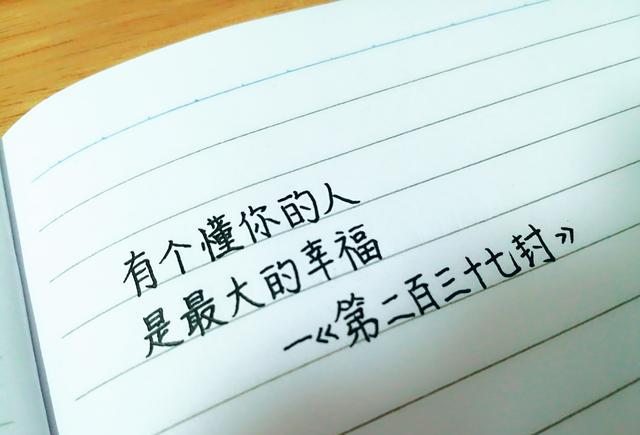 有个懂你的人
是最大的幸福
—《第二百三十七封》